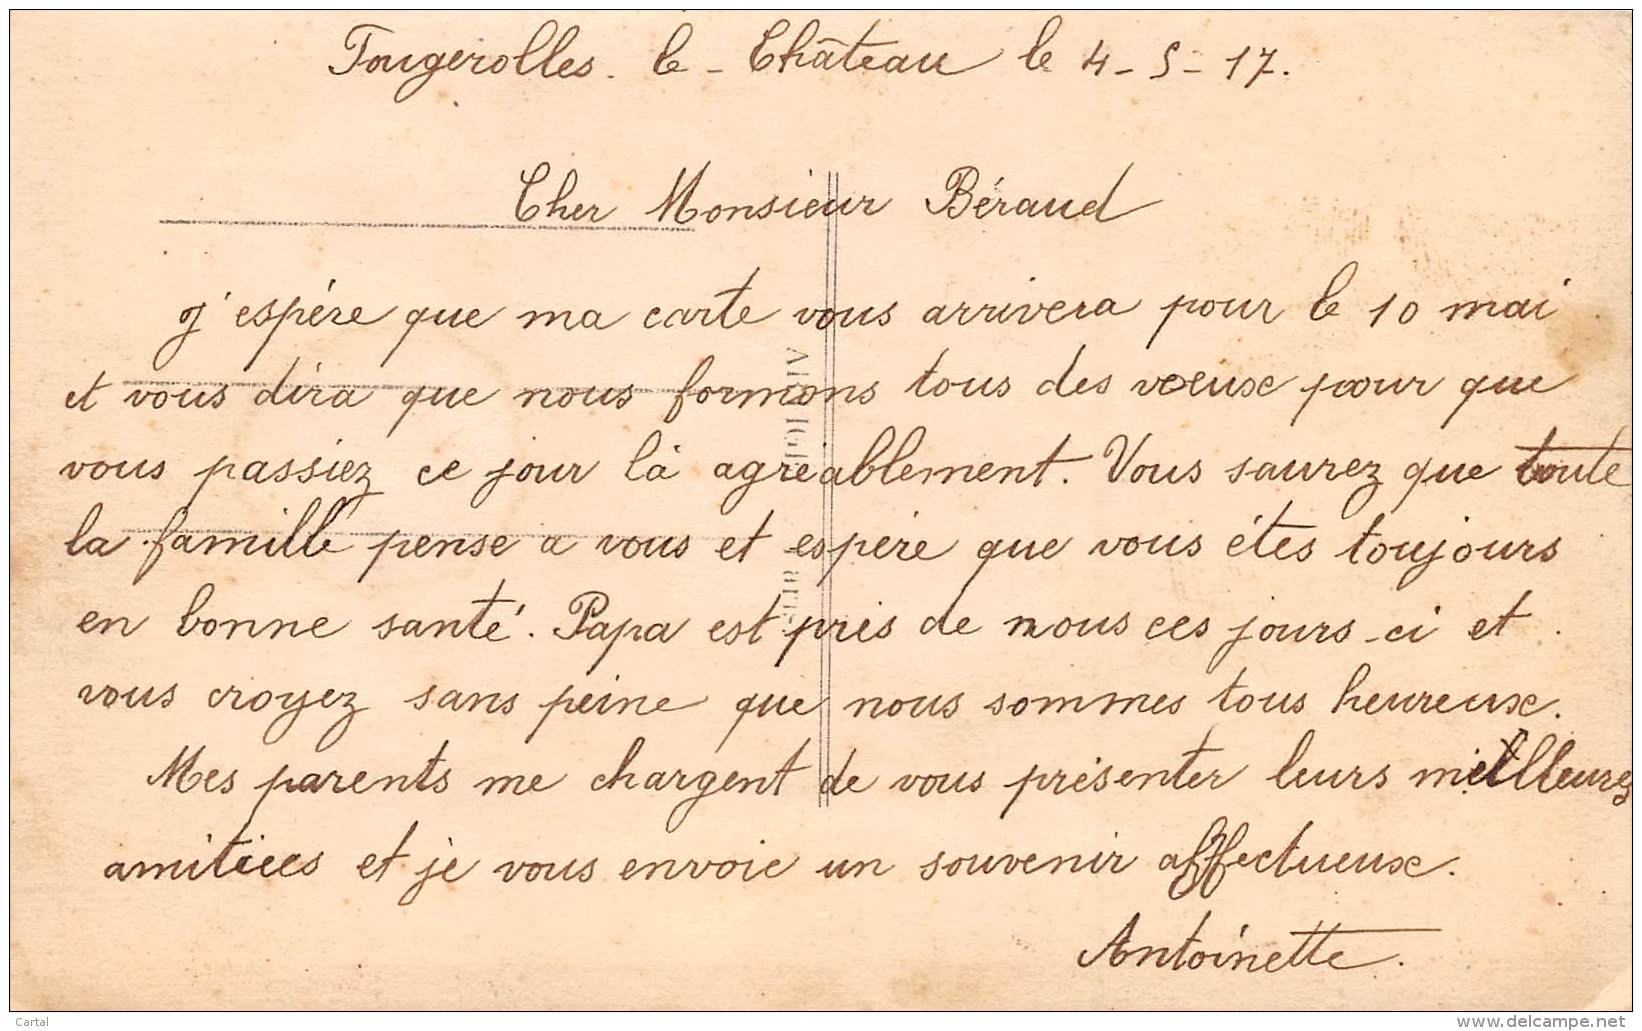 Fougerolles - le - Château le 4 - 5 - 17.
Cher Monsieur Béraud
j'espére que ma carte vous arrivera pour le 10 mai
et vous dira que nous formons tous des voeux pour que
vous passiez ce jour là agréablement. Vous saurez que toute
la famille pense a vous et espére que vous étes toujours
en bonne santé. Papa est prés de nous ces jours-ci et
vous croyez sans peine que nous sommes tous heureux.
Mes parents me chargent de vous présenter leurs meilleures
amitiées et je vous envoie un souvenir affectueux.
Antoinette.
Cartal
www.delcampe.net